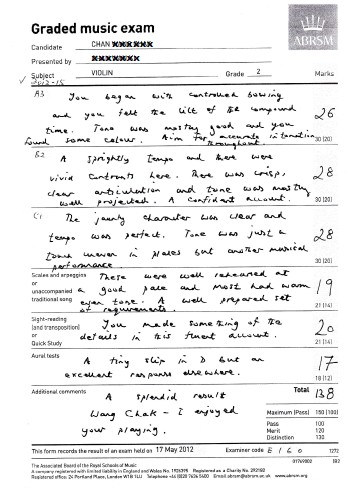 Graded music exam
ABRSM
Candidate CHAN
Presented by
Subject VIOLIN Grade 2 Marks
✓ 2012-15
A3 You began with controlled bowing
and you felt the lilt of the compound
time. Tone was mostly good and you
found some colour. Aim for accurate intonation
throughout.
26
30 (20)
B2 A sprightly tempo and there were
vivid contrasts here. There was crisp,
clear articulation and tone was mostly
well projected. A confident account.
28
30 (20)
C1 The jaunty character was clear and
tempo was perfect. Tone was just a
touch uneven in places but another musical
performance.
28
30 (20)
Scales and arpeggios
or
unaccompanied
traditional song
These were well rehearsed at
a good pace and most had warm
even tone. A well prepared set
of requirements.
19
21 (14)
Sight-reading
(and transposition)
or
Quick Study
You made something of the
details in this fluent account.
20
21 (14)
Aural tests
A tiny slip in D but an
excellent response elsewhere.
17
18 (12)
Additional comments
A splendid result
Wang Chak - I enjoyed
your playing.
Total 138
Maximum (Pass) 150 (100)
Pass 100
Merit 120
Distinction 130
This form records the result of an exam held on 17 May 2012 Examiner code E160 1272
The Associated Board of the Royal Schools of Music 01769002 EB2
A company registered with limited liability in England and Wales No. 1926395 Registered as a Charity No. 292182
Registered office: 24 Portland Place, London W1B 1LU Telephone +44 (0)20 7636 5400 Email abrsm@abrsm.ac.uk www.abrsm.org